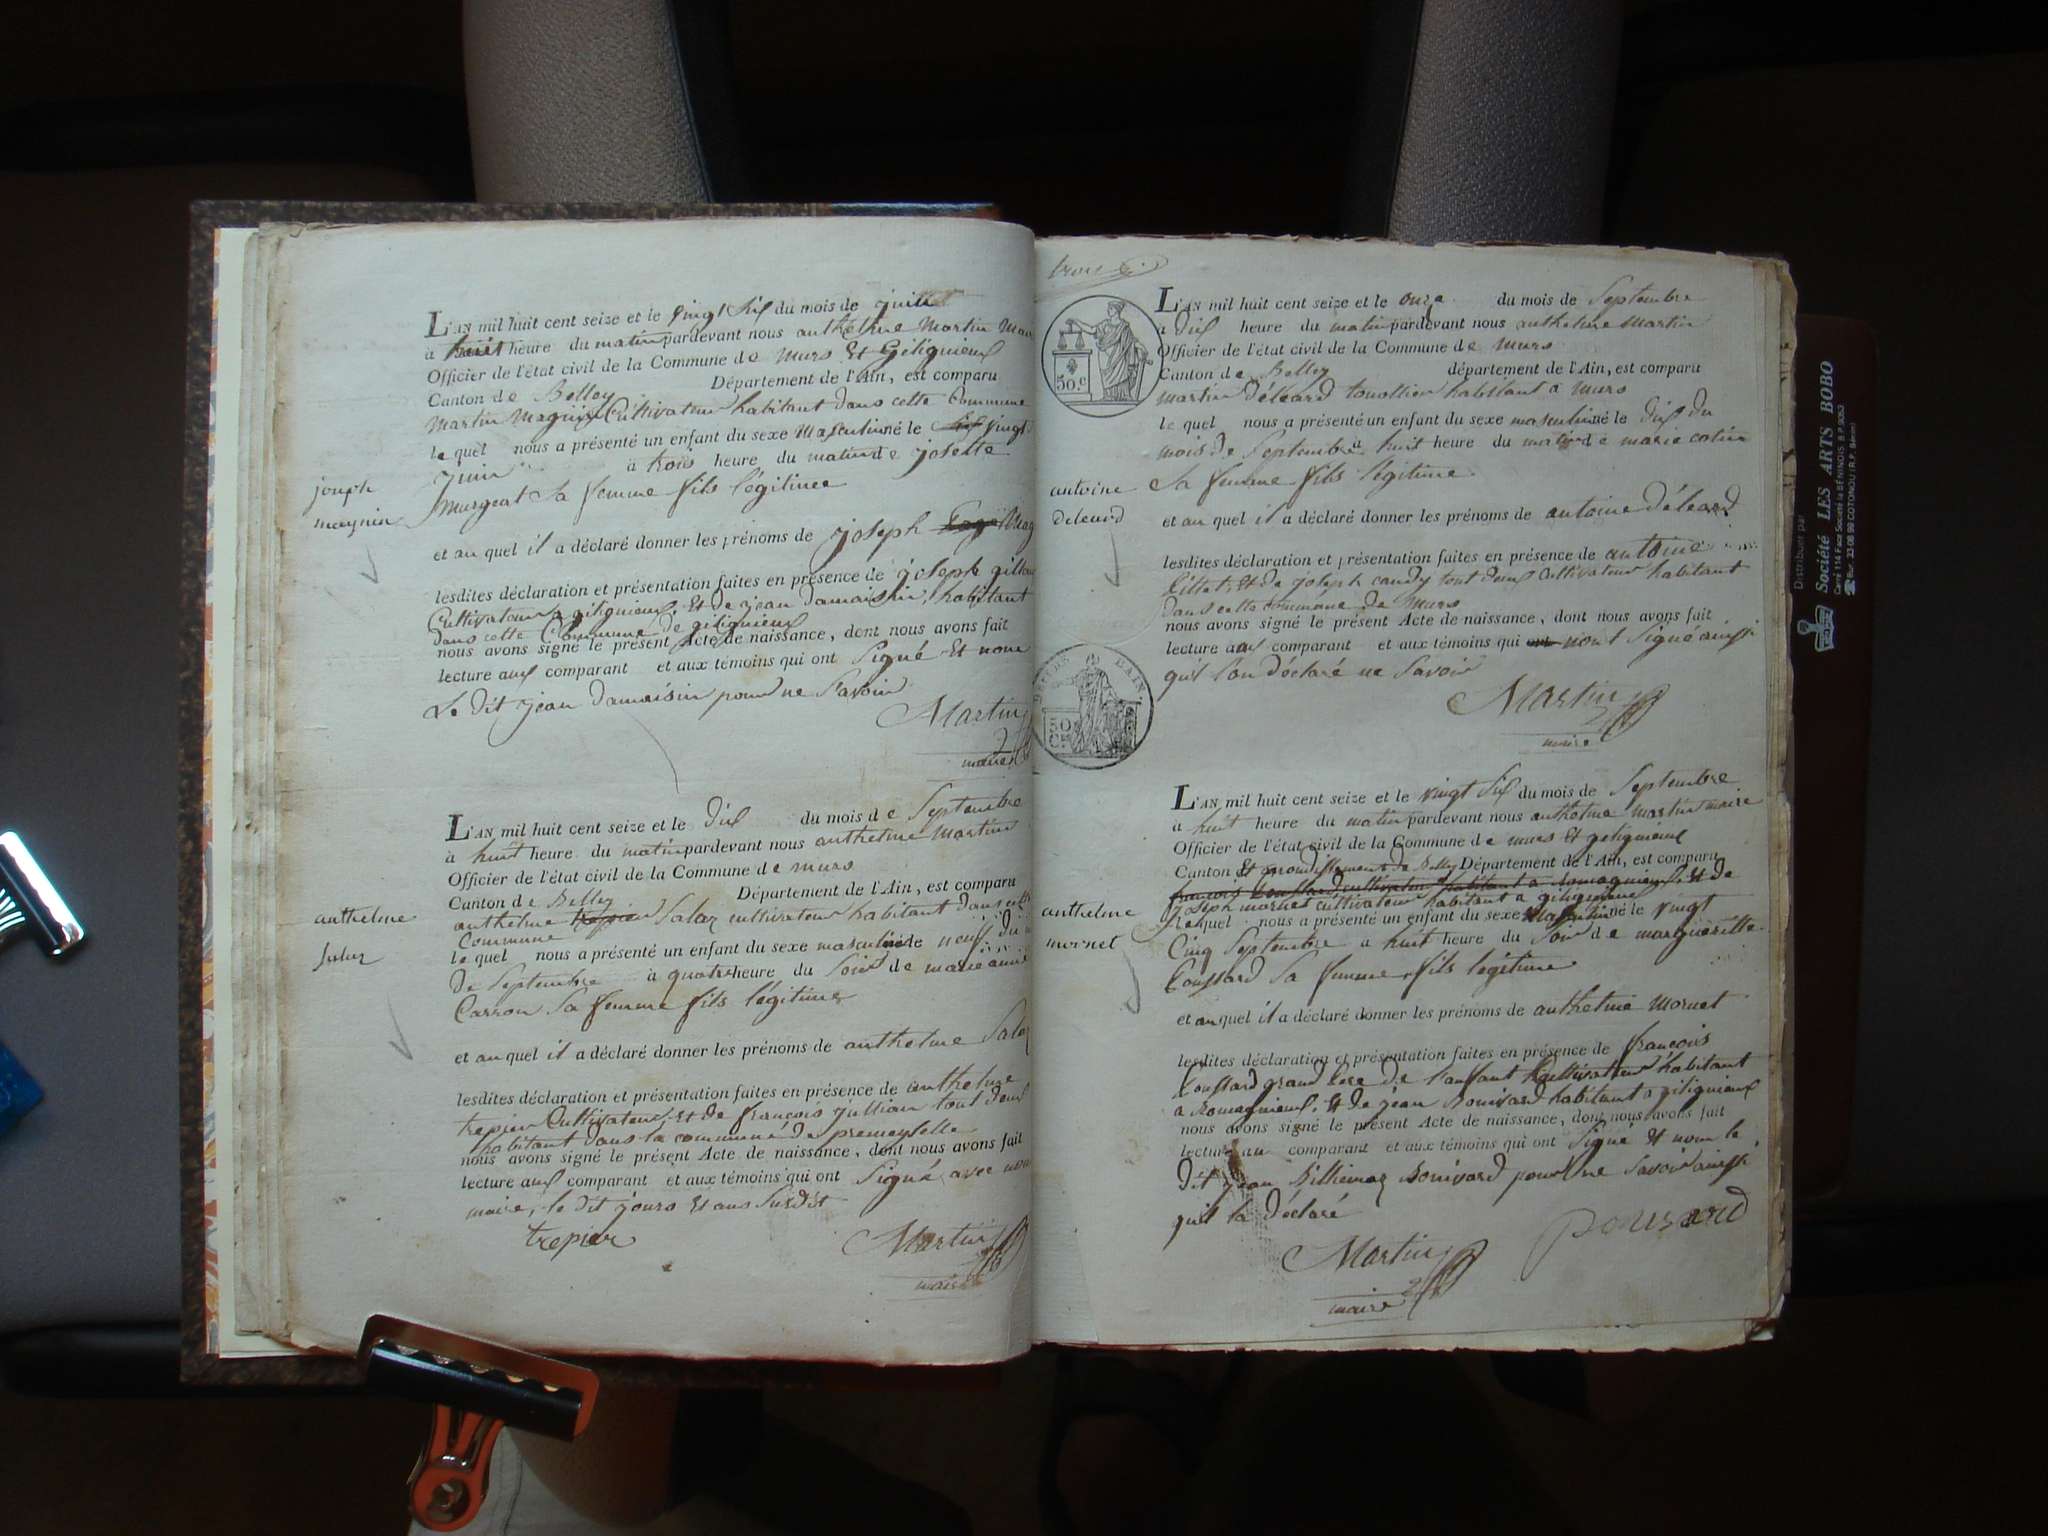 L'AN mil huit cent seize et le vingt six du mois de juillet
à huit heure du matin pardevant nous anthelme Martin
Officier de l'état civil de la Commune de murs et gelignieux
Canton de Belley Département de l'Ain, est comparu
Martin Cultivateur habitant dans cette Commune
le quel nous a présenté un enfant du sexe Masculin né le vingt
juin à trois heure du matin de josette
Murgeat Sa femme fils légitime
joseph
magnin
et au quel il a déclaré donner les prénoms de joseph
lesdites déclaration et présentation faites en présence de joseph
Cultivateur a geligneux, et de jean damaisin, habitant
dans cette Commune de geligneux
nous avons signé le présent Acte de naissance, dont nous avons fait
lecture aux comparant et aux témoins qui ont signé et nom
Le dit jean damaisin pour ne Savoir
Martin
maire
L'AN mil huit cent seize et le dix du mois de Septembre
à huit heure du matin pardevant nous anthelme martin
Officier de l'état civil de la Commune de murs
Canton de Belley Département de l'Ain, est comparu
anthelme trepier Salaz cultivateur habitant dans cette
Commune
anthelme
Salaz
le quel nous a présenté un enfant du sexe masculin né le neuf du
de Septembre à quatre heure du Soir de marie
Carron Sa femme fils légitime
et au quel il a déclaré donner les prénoms de anthelme Salaz
lesdites déclaration et présentation faites en présence de anthelme
trepier Cultivateur, et de françois jullian tout deux
habitant dans la commune de premeyselle
nous avons signé le présent Acte de naissance, dont nous avons fait
lecture aux comparant et aux témoins qui ont Signé avec nous
maire, le dit jours et ans Susdit
trepier
Martin
maire
trois
50 c
L'AN mil huit cent seize et le onze du mois de Septembre
à dix heure du matin pardevant nous anthelme Martin
Officier de l'état civil de la Commune de murs
Canton de Belley département de l'Ain, est comparu
martin déleard tonollier habitant a murs
le quel nous a présenté un enfant du sexe masculin né le dix du
mois de Septembre à huit heure du matin de marie cotin
Sa femme fils légitime
antoine
deleard
et au quel il a déclaré donner les prénoms de antoine déleard
lesdites déclaration et présentation faites en présence de antoine
billet, et de joseph candy tout deux Cultivateur habitant
dans cette commune de Murs
nous avons signé le présent Acte de naissance, dont nous avons fait
lecture aux comparant et aux témoins qui ont nont Signé ainssi
quil lon déclaré ne Savoir
Martin
maire
L'AN mil huit cent seize et le vingt Six du mois de Septembre
à huit heure du matin pardevant nous anthelme martin maire
Officier de l'état civil de la Commune de murs et geligneux
Canton et arrondissement de Belley Département de l'Ain, est comparu
françois cultivateur habitant a Romagnieux, et de
joseph mornet cultivateur habitant a geligneux
anthelme
mornet
Lequel nous a présenté un enfant du sexe Masculin né le vingt
Cinq Septembre à huit heure du Soir de margueritte
Sa femme fils légitime
et au quel il a déclaré donner les prénoms de anthelme Mornet
lesdites déclaration et présentation faites en présence de françois
grand Père de l'anfant Cultivateur habitant
a Romagnieux, et de jean Bonivard habitant a geligneux
nous avons signé le présent Acte de naissance, dont nous avons fait
lecture au comparant et aux témoins qui ont Signé et nom le
dit jean Billiemaz Bonivard pour ne Savoir ainssi
quil la déclaré
Martin
maire
ponsard
Distribuer par
Société LES ARTS BOBO
Carré 114 Face Société la BÉNINOIS B.P. 9053